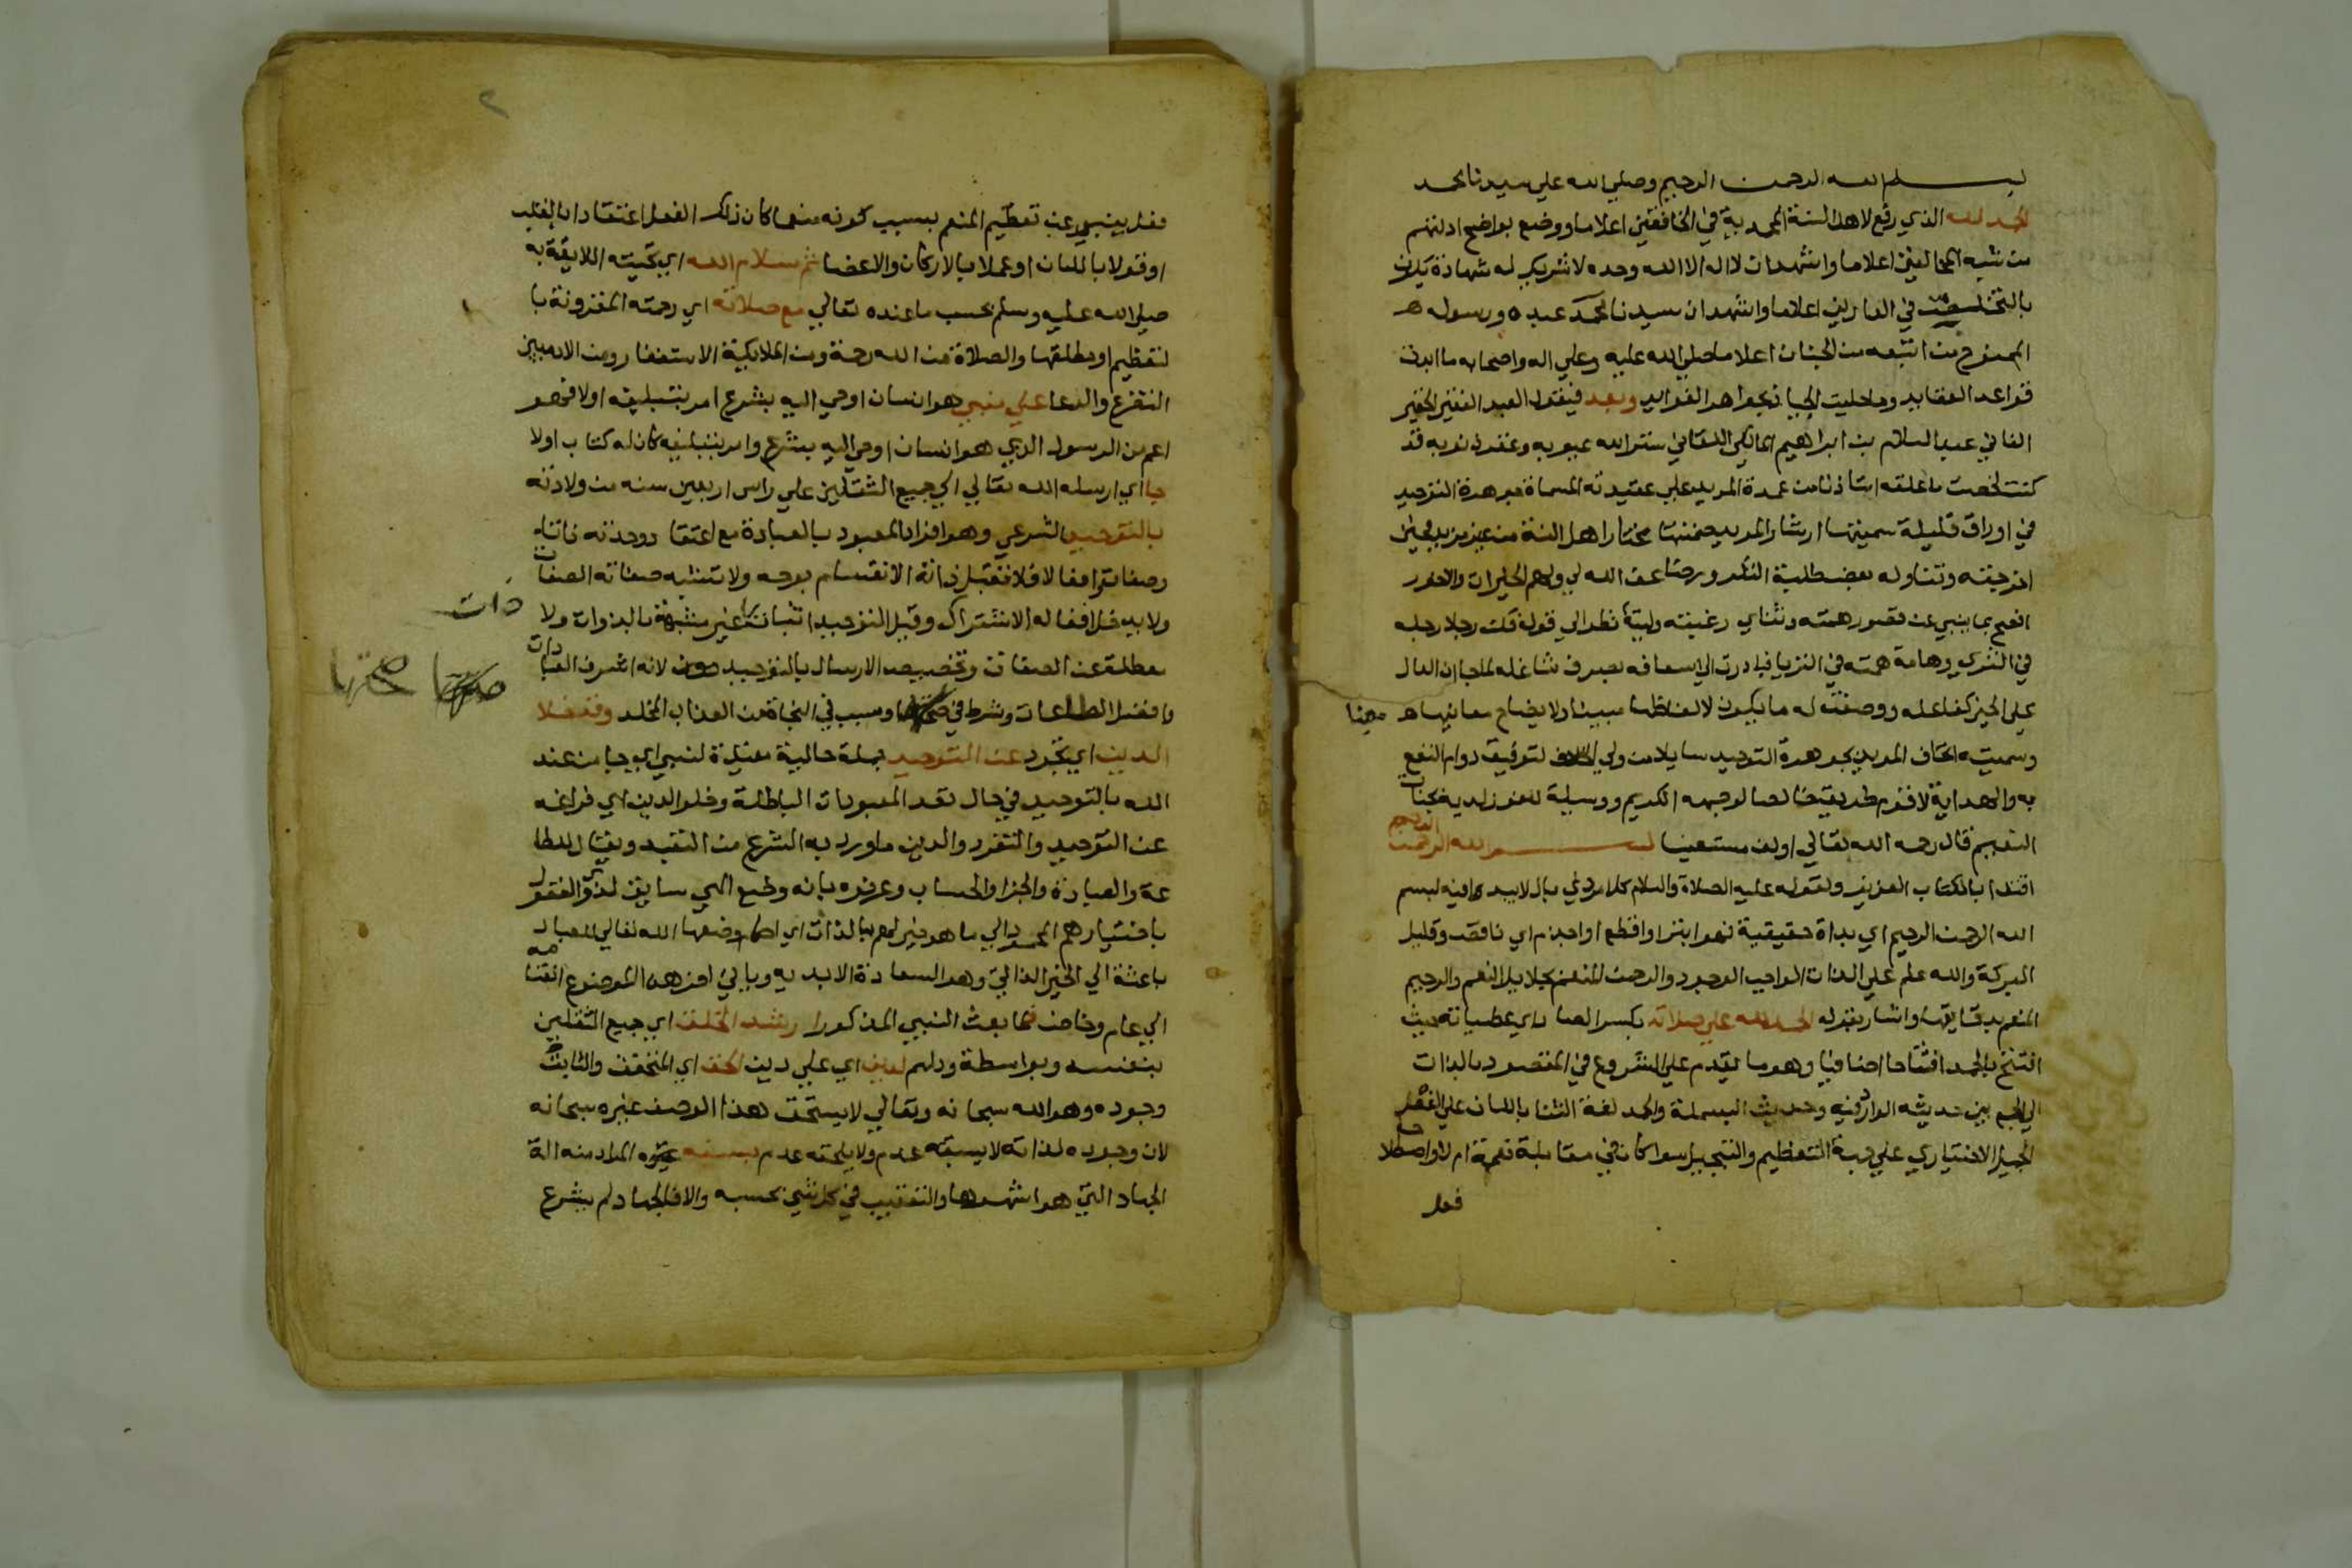 بسم الله الرحمن الرحيم وصلي الله علي سيدنا محمد
الحمد لله الذي رفع لاهل السنة المحمدية في الخافقين اعلاما ووضع بواضح ادلتهم
من شبه المخالفين اعلاما واشهد ان لا اله الا الله وحده لا شريك له شهادة تكون
بالتخلص في الدارين اعلاما واشهد ان سيدنا محمد عبده ورسوله
الممنوح من اتبعه من الجنان اعلاما صلي الله عليه وعلي اله واصحابه ما
قواعد العقايد وما حليت الجياد بجواهر الفوايد وبعد فيقول العبد الفقير الحقير
الفاني عبد السلام بن ابراهيم المالكي اللقاني ستر الله عيوبه وغفر ذنوبه قد
كنت لخصت ما علقه استاذنا من عمدة المريد علي عقيدته المسماة جوهرة التوحيد
في اوراق قليلة سميتها ارشاد المريد ضمنتها مختار اهل السنة من غير مزيد فحين
اخرجته وتناوله بعض طلبة التكرور رضنا عف الله لي ولهم الخيرات والاجور
افصح بما ينبي عن قصور همته وتناهي رغبته ولبية نظر الي قوله قلت رجلا رجله
في الثري وهامة همته في الثريا فبادرت الي اسعافه بصرف شاغله لما جا ان الدال
علي الخير كفاعله ووضعت له ما يكون لالفاظها مبينا ولايضاح معانيها معينا
وسميته اتحاف المريد بجوهرة التوحيد سايلا من ولي التوفيق دوام النفع
به والهداية لاقوم طريق خالصا لوجهه الكريم ووسيلة للفوز لديه بجنات
النعيم قال رحمه الله تعالي اولف مستعينا بسم الله الرحمن الرحيم
اقتدا بالكتاب العزيز ولقوله عليه الصلاة والسلام كل امر ذي بال لا يبدا فيه ببسم
الله الرحمن الرحيم اي بداة حقيقية فهو ابتر او اقطع او اجذم اي ناقص وقليل
البركة والله علم علي الذات الواجب الوجود والرحمن المنعم بجلايل النعم والرحيم
المنعم بدقايقها واشار بقوله الحمد لله علي صلاته بكسر الصاد اي عطياته حيث
افتتح بالحمد افتتاحا اضافيا وهو ما يقدم علي الشروع في المقصود بالذات
الي الجمع بين حديثه الوارد فيه وحديث البسملة والحمد لغة الثنا باللسان علي الفعل
الجميل الاختياري علي جهة التعظيم والتبجيل سوا كان في مقابلة نعمة ام لا واصطلاحا
فعل
٢
فعل ينبي عن تعظيم المنعم بسبب كونه منعما كان ذلك الفعل اعتقادا بالقلب
او قولا باللسان او عملا بالاركان والاعضا ثم سلام الله اي تحيته اللايقة به
صلي الله عليه وسلم بحسب ما عنده تعالي مع صلاته اي رحمته المقرونة با
لتعظيم او مطلقها والصلاة من الله رحمة ومن الملايكة الاستغفار ومن الادميين
التضرع والدعا علي نبي هو انسان اوحي اليه بشرع امر بتبليغه اولا فهو
اعم من الرسول الذي هو انسان اوحي اليه بشرع وامر بتبليغه كان له كتاب اولا
جا اي ارسله الله تعالي الي جميع الثقلين علي راس اربعين سنه من ولادته
بالتوحيد الشرعي وهو افراد المعبود بالعبادة مع اعتقاد وحدته ذاتا
وصفات وافعالا فلا تقبل ذاته الانقسام بوجه ولا تشبه صفاته الصفات
ولا يدخل افعاله الاشتراك وقيل التوحيد اثبات ذات غير مشبهة بالذوات ولا
معطلة عن الصفات وتخصيصه الارسال بالتوحيد لانه اشرف العبادات
وافضل الطاعات وشرط في صحتها وسبب في النجاة من العذاب المخلد وقد خلا
الدين اي تجرد عن التوحيد جملة حالية مقيدة لنبي اي جا من عند
الله بالتوحيد في حال تعدد المعبودات الباطلة وخلو الدين اي فراغه
عن التوحيد والتفرد والدين ما ورد به الشرع من التعبد ويقال للطا
عة والعبادة والجزا والحساب وعرفوه بانه وضع الهي سايق لذوي العقول
باختيارهم المحمود الي ما هو خير لهم بالذات اي احكام وضعها الله تعالي للعباد
باعثة الي الخير الذاتي وهو السعادة الابديه وياتي اخر هذا الموضوع انقسامه
الي عام وخاص فلما بعث النبي المذكور ارشد الخلق اي جميع الثقلين
بنفسه وبواسطة ودلهم لدين اي علي دين الحق اي المتحقق والثابت
وجوده وهو الله سبحانه وتعالي لا يستحق هذا الوصف غيره سبحانه
لان وجوده لذاته لا يسبقه عدم ولا يلحقه عدم بسيفه المراد منه الة
الجهاد التي هو اشهرها والتعقيب في كل شي بحسبه والا فالجهاد لم يشرع
ذات
صحتها